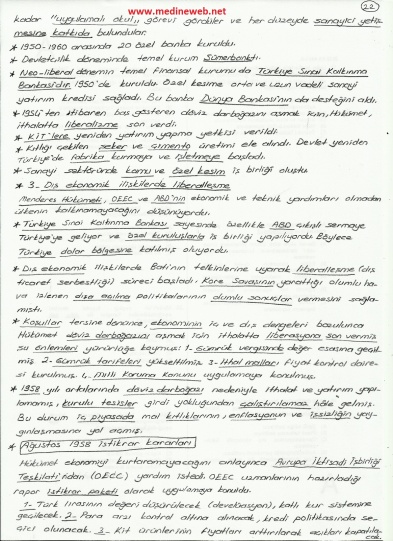 www.medineweb.net
22
kadar "uygulamalı okul," görevi gördüler ve her düzeyde sanayici yetiş
mesine katkıda bulundular.
* 1950-1960 arasında 20 özel banka kuruldu.
* Devletçilik döneminde temel kurum Sümerbanktı.
* Neo-liberal dönemin temel finansal kurumu da Türkiye Sınai Kalkınma
Bankası'dır. 1950'de kuruldu. Özel kesime orta ve uzun vadeli sanayi
yatırım kredisi sağladı. Bu banka Dünya Bankası'nın da desteğini aldı.
* 1954'ten itibaren baş gösteren döviz darboğazını aşmak için, Hükümet,
ithalatta liberalizme son verdi.
* KİT'lere yeniden yatırım yapma yetkisi verildi.
* Kıtlığı çekilen şeker ve çimento üretimi ele alındı. Devlet yeniden
Türkiye'de fabrika kurmaya ve işletmeye başladı.
* Sanayi sektöründe kamu ve özel kesim iş birliği oluştu
* 3- Dış ekonomik ilişkilerde liberalleşme
Menderes Hükümeti, OEEC ve ABD'nin ekonomik ve teknik yardımları olmadan
ülkenin kalkınamayacağını düşünüyordu.
* Türkiye Sınai Kalkınma Bankası sayesinde özellikle ABD çıkışlı sermaye
Türkiye'ye geliyor ve özel kuruluşlarla iş birliği yapılıyordu. Böylece
Türkiye dolar bölgesine katılmış oluyordu.
* Dış ekonomik ilişkilerde Batı'nın telkinlerine uyarak liberalleşme (dış
ticaret serbestliği) süreci başladı. Kore Savaşının yarattığı olumlu ha-
va izlenen dışa açılma politikalarının olumlu sonuçlar vermesini sağla-
mıştı.
* Koşullar tersine dönünce, ekonominin iç ve dış dengeleri bozulunca
Hükümet döviz darboğazını aşmak için ithalatta liberasyona son vermiş
şu önlemleri yürürlüğe koymuş: 1- Gümrük vergisinde değer esasına geçil-
miş 2- Gümrük tarifeleri yükseltilmiş 3- İthal malları fiyat kontrol daire-
si kurulmuş 4. Milli Koruma Kanunu uygulamaya konulmuş.
* 1958 yılı ortalarında döviz darboğazı nedeniyle ithalat ve yatırım yapı-
lamamış, kurulu tesisler girdi yokluğundan çalıştırılamaz hâle gelmiş.
Bu durum iç piyasada mal kıtlıklarının, enflasyonun ve işsizliğin yay-
gınlaşmasına yol açmış.
* Ağustos 1958 İstikrar kararları
Hükümet ekonomiyi kurtaramayacağını anlayınca Avrupa İktisadi İşbirliği
Teşkilatı'ndan (OECC) yardım istedi. OEEC uzmanlarının hazırladığı
rapor istikrar paketi olarak uygulamaya konuldu.
1- Türk lirasının değeri düşürülecek (devalüasyon), katlı kur sistemine
geçilecek. 2- Para arzı kontrol altına alınacak, kredi politikasında se-
çici olunacak. 3- Kit ürünlerinin fiyatları arttırılarak açıkları kapatıla-
cak.